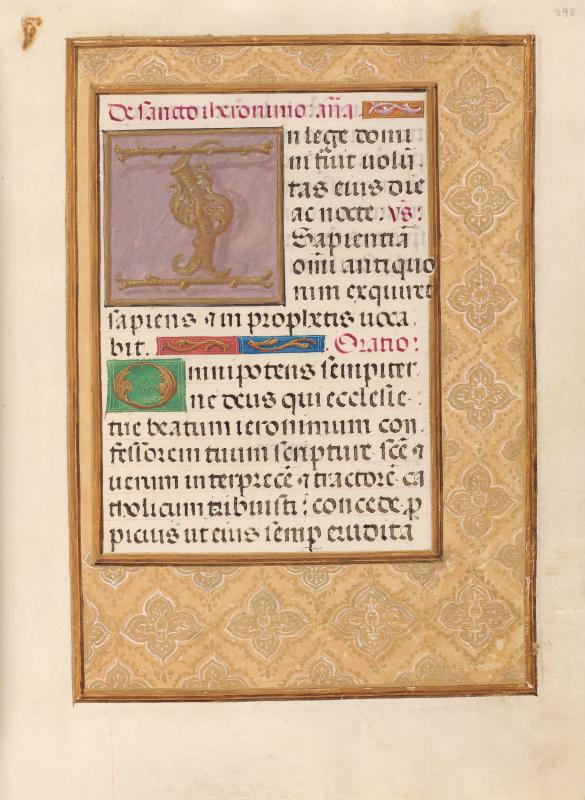 298
De sancto iheronimo añã
In lege domi
ni fuit volũ
tas eius die
ac nocte. vs:
Sapientiã
omĩ antiquo
rum exquiret
sapiens ⁊ in prophetis uoca
bit. Oratio:
Omnipotens sempiter
ne deus qui ecclesie
tue beatum ieronimum con
fessorem tuum scripture scẽ ⁊
uerum interpretẽ ⁊ tractorẽ ca
tholicum tribuisti: concede ꝓ
picius ut eius semꝑ erudita